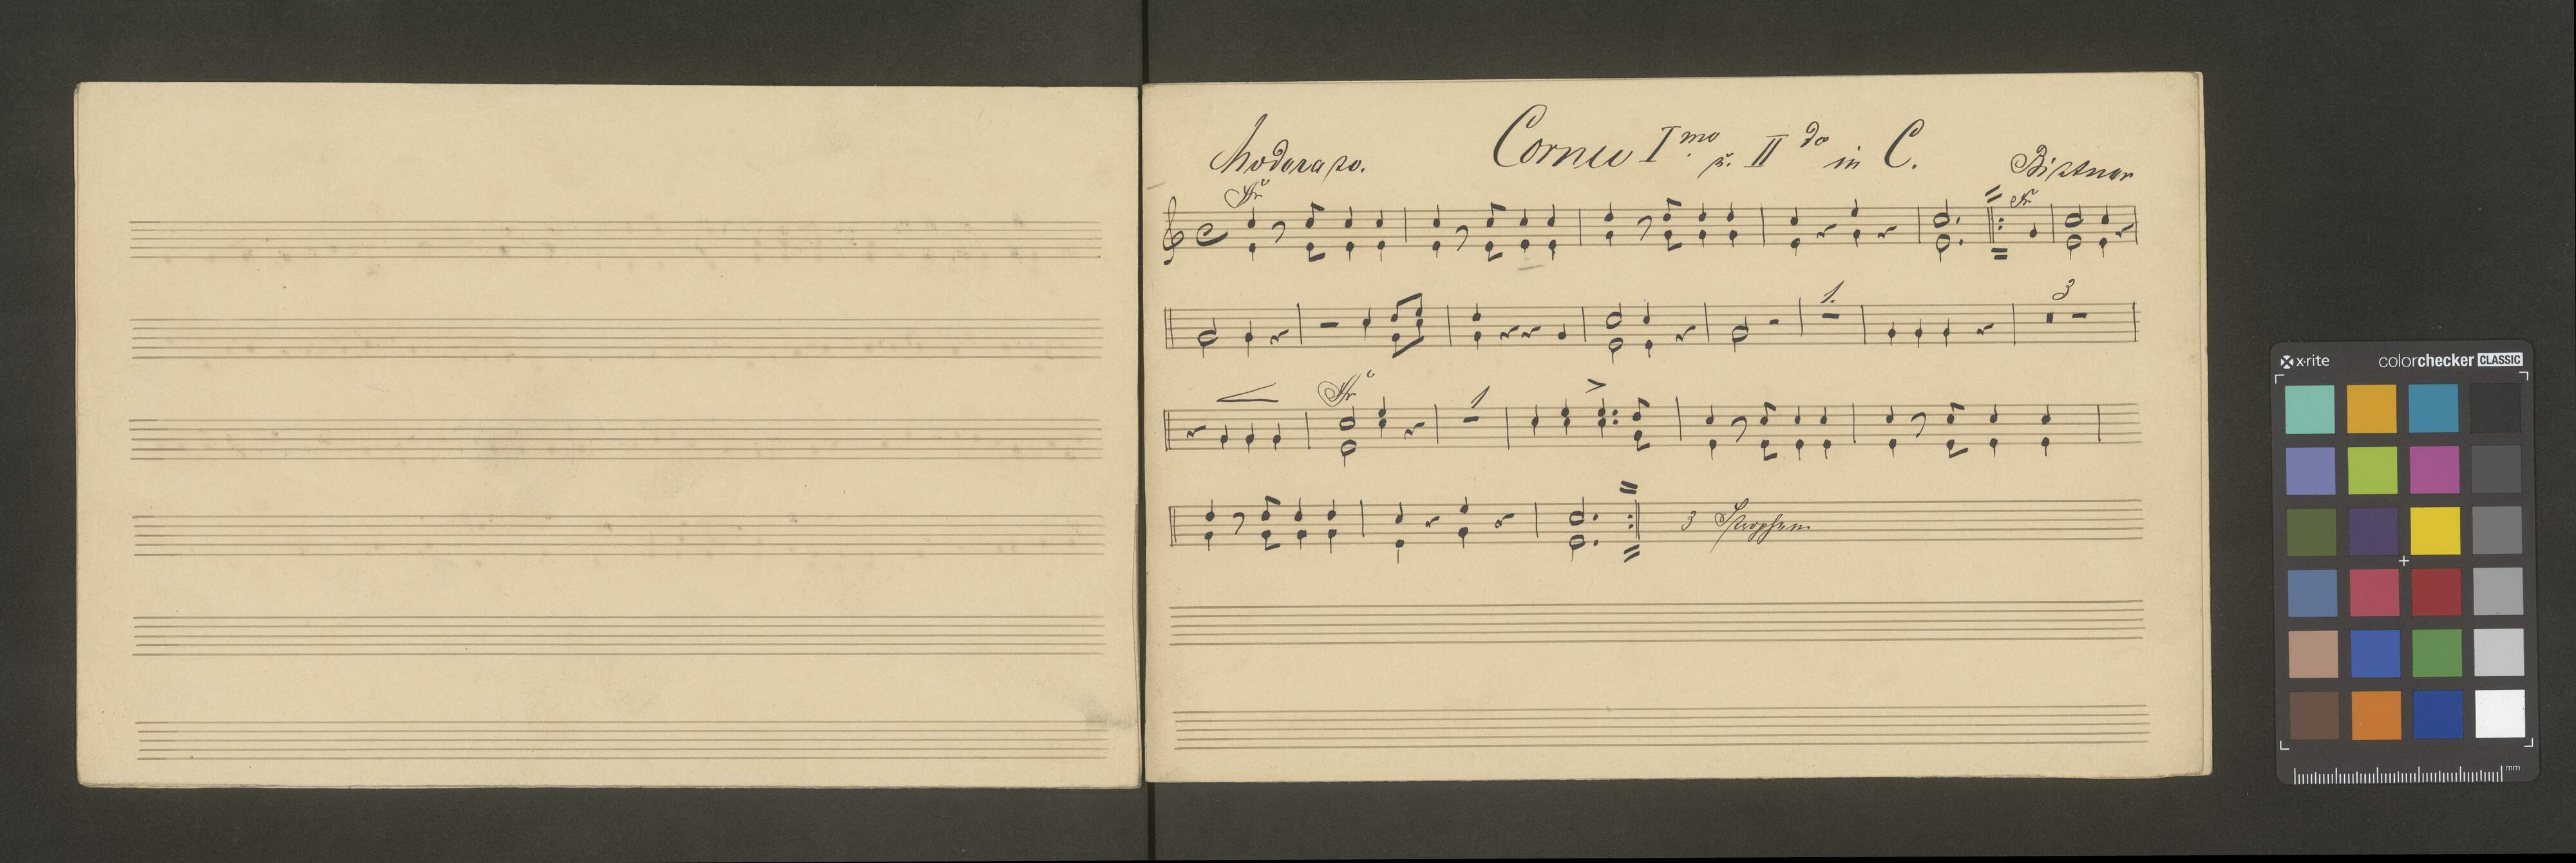 Moderato. Cornu I mo u. II do in C. Bittner
1.
3
1
3 Strophen
x-rite colorchecker CLASSIC
mm